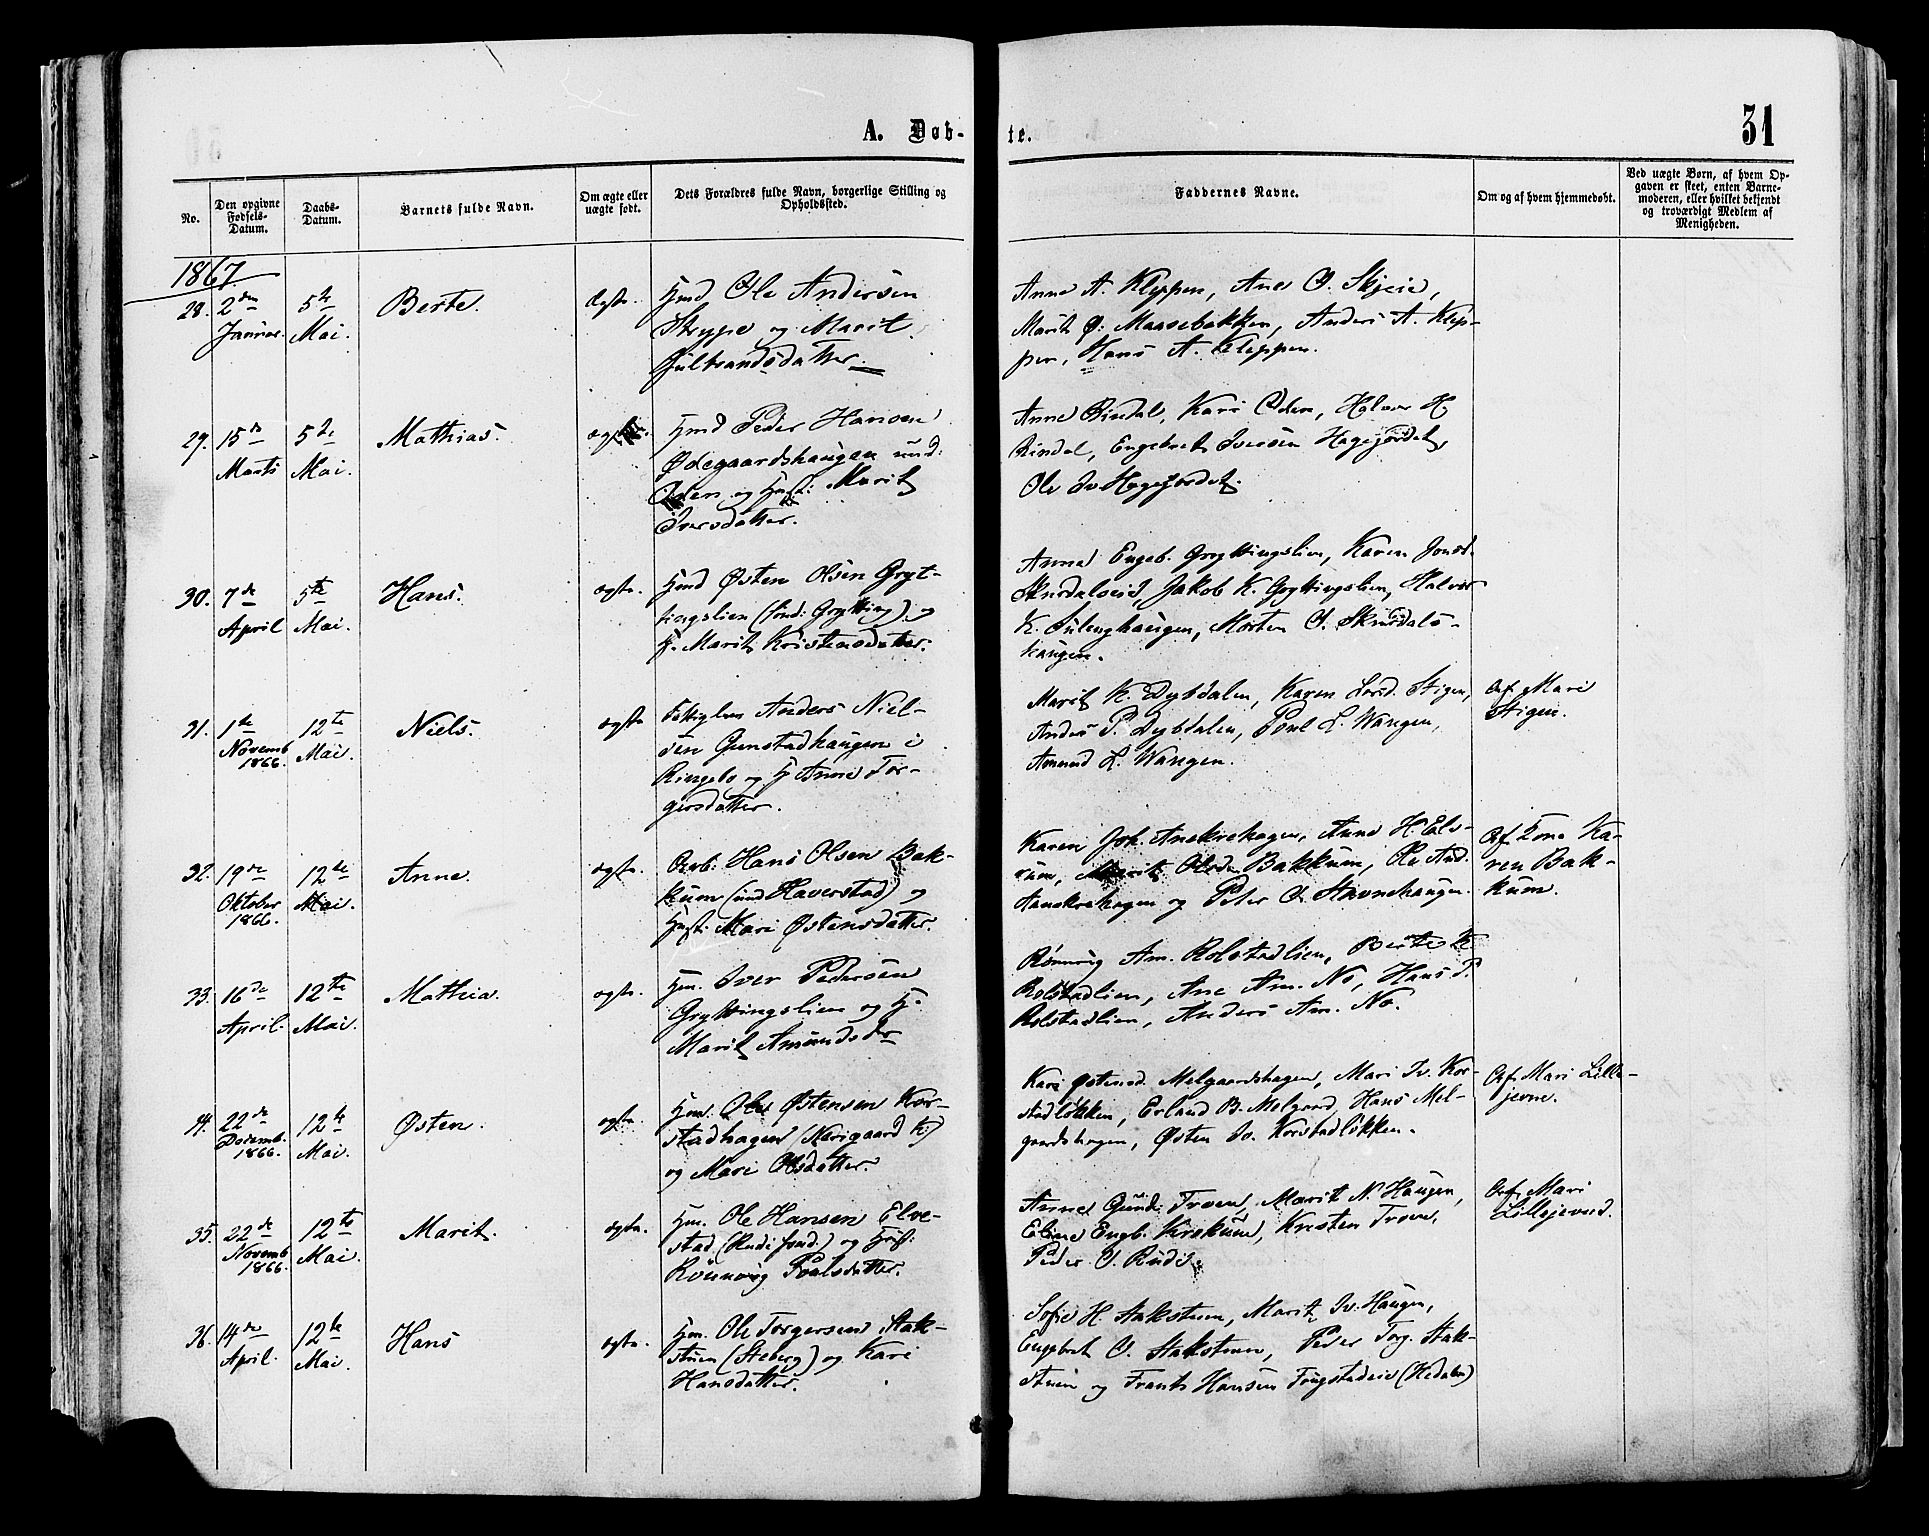 A. Døb-
te.
31
No.
Den opgivne
Fødsels-
Datum.
Daabs-
Datum.
Barnets fulde Navn.
Om ægte eller
uægte født.
Dets Forældres fulde Navn, borgerlige Stilling og
Opholdssted.
Faddernes Navne.
Om og af hvem hjemmedøbt.
Ved uægte Børn, af hvem Op-
gaven er skeet, enten Barne-
moderen, eller hvilket bekjendt
og troværdigt Medlem af
Menigheden.
1867
28. 2den
Januar.
5te
Mai.
Berte.
ægte.
Hmd Ole Andersen
Strype og Marit
Gultbrandsdatter.
Anne A. Kleppen, Ane O. Skjeie,
Marit O. Maasebakken, Anders A. Klep-
pen, Hans A. Kleppen.
29. 15de
Marts
5te
Mai.
Mathias.
ægte.
Hmd Peder Hansen
Ødegaardshaugen und:
Oden og Hust: Marit
Iversdatter.
Anne Rindal, Kari Oden, Halvor H.
Rindal, Engebret Iversen Hagejordet,
Ole Iv. Hagejordet.
30. 7de
April
5te
Mai.
Hans.
ægte.
Hmd Østen Olsen Gryt-
tingslien (und: Grytting) og
H. Marit Kristensdatter.
Anne Engeb. Gryttingslien, Karen Jonsd.
Skurdalseid, Jakob K. Gryttingslien, Halvor
K. Sulenghaugen, Morten O. Skurdals-
haugen.
31. 1te
Novemb
1866.
12te
Mai.
Niels.
ægte
Fattiglem Anders Niel-
sen Gunstadhaugen i
Ringebo og H Anne Tor-
gersdatter.
Marit K. Dybdalen, Karen Larsd. Stigen,
Anders P. Dybdalen, Poul L. Wangen,
Amund L. Wangen.
Af Mari
Stigen.
32. 19de
Oktober
1866.
12te
Mai.
Anne.
ægte.
Arb: Hans Olsen Bak-
kum (und Haverstad) og
Hust: Mari Østensdatter.
Karen Joh. Anekrehagen, Anne H. Elv-
rum, Marit Olsdr Bakkum, Ole And.
Hanskrehagen og Peter O. Stavnehaugen.
Af Tone Ka-
ren Bak-
kum.
33. 16de
April.
12te
Mai.
Mathea.
ægte.
Hm. Iver Pedersen
Gryttingslien og H.
Marit Amundsdr
Rønnvig Am. Rolstadlien, Berte K
Rolstadlien, Ane Am. No, Hans P.
Rolstadlien, Anders Am. No.
34. 22de
Decemb.
1866.
12te
Mai.
Østen.
ægte.
Hm. Ole Østensen Kor-
stadhagen (Narigaard k:)
og Mari Olsdatter.
Kari Østensd. Melgaardshagen, Mari Iv. Kor-
stadløkken, Erland B. Melgaard, Hans Mel-
gaardshagen, Østen Iv. Korstadløkken.
Af Mari Lille-
jevne.
35. 22de
Novemb
1866.
12te
Mai.
Marit.
ægte.
Hm. Ole Hansen Elve-
stad (Rudi fond.) og Hust:
Rønnvig Poulsdatter.
Anne Gund. Troen, Marit N. Haugen,
Eline Engb. Krekum, Kristen Troen,
Peder O. Rudi.
Af Mari
Lillejevnd.
36. 14de
April.
12te
Mai.
Hans
ægte.
Hm. Ole Torgersen Stak-
stuen (Steberg) og Kari
Hansdatter.
Sofie H. Stakstuen, Marit Iv. Haugen,
Engebret O. Stakstuen, Peder Torg. Stak-
stuen og Frants Hansen Frugstadeie (Hedalen)